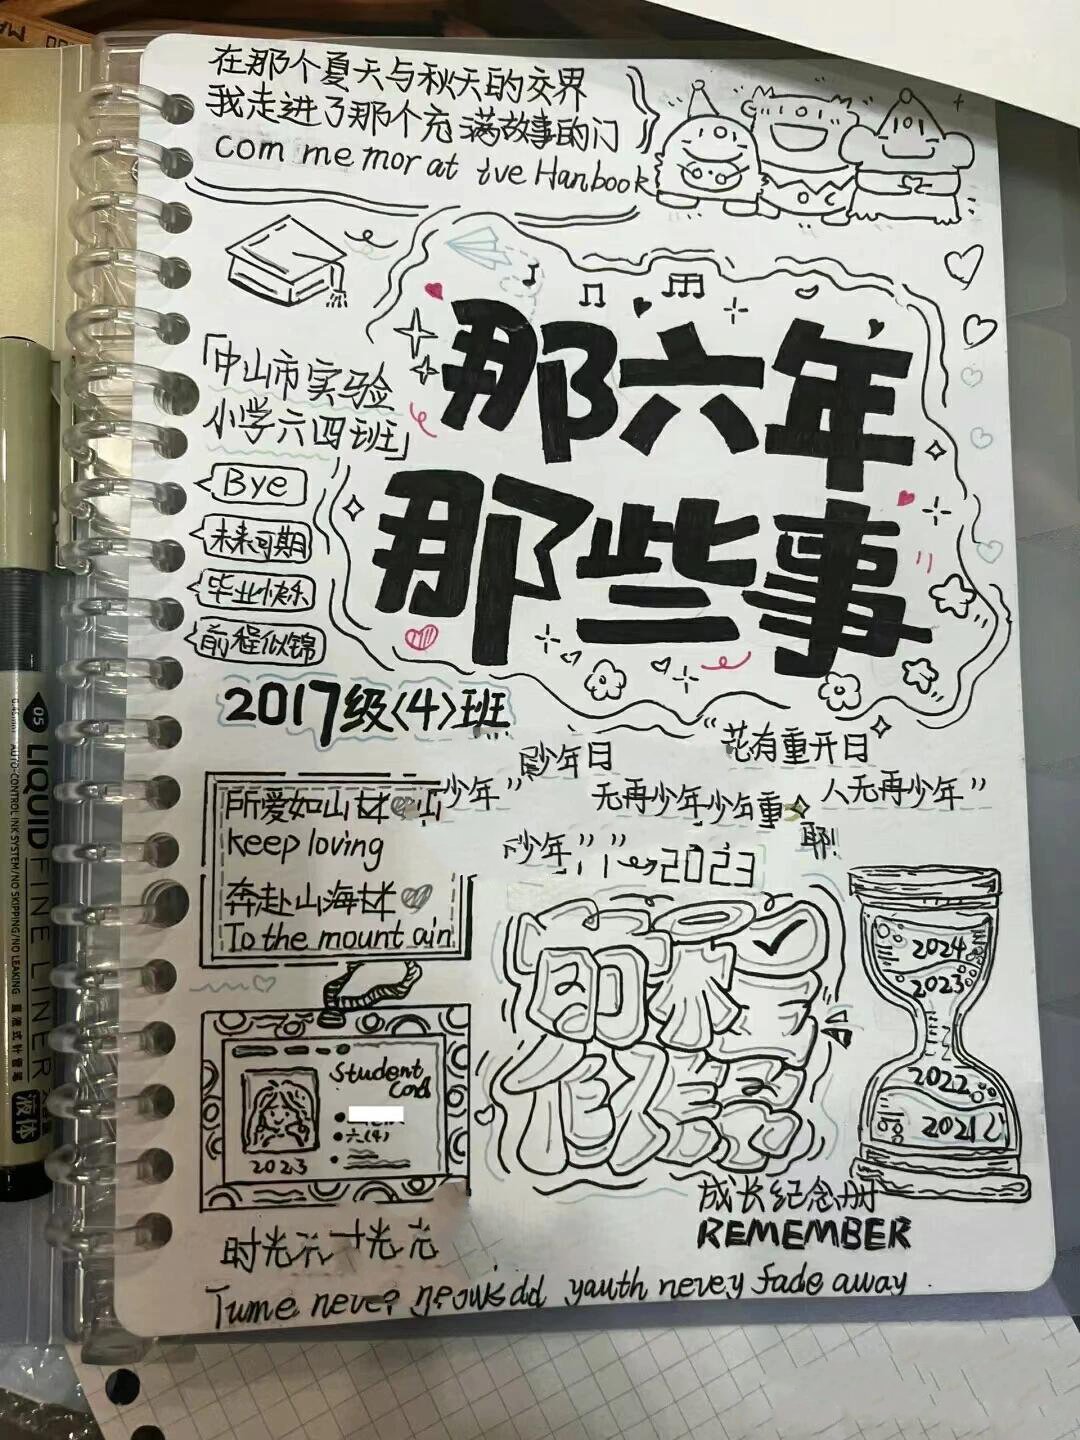 在那个夏天与秋天的交界
我走进了那个充满故事的门
com me mor at tve Hanbook
那六年
那些事
「中山市实验
小学六四班」
Bye
未来可期
毕业快乐
前程似锦
2017级(4)班
“花有重开日
少年日
少年”
无再少年少年重
人无再少年”
所爱如山
keep loving
奔赴山海
To the mount ain
少年”
2023
前程
似锦
2024
2023
2022
2021
Student
Card
六(4)
2023
成长纪念册
REMEMBER
时光
Tume never yauth nevey fade away
05 LIQUID FINE LINER
AUTO-CONTROL INK SYSTEM/NO SKIPPING/NO LEAKING
直液式针管笔
液体